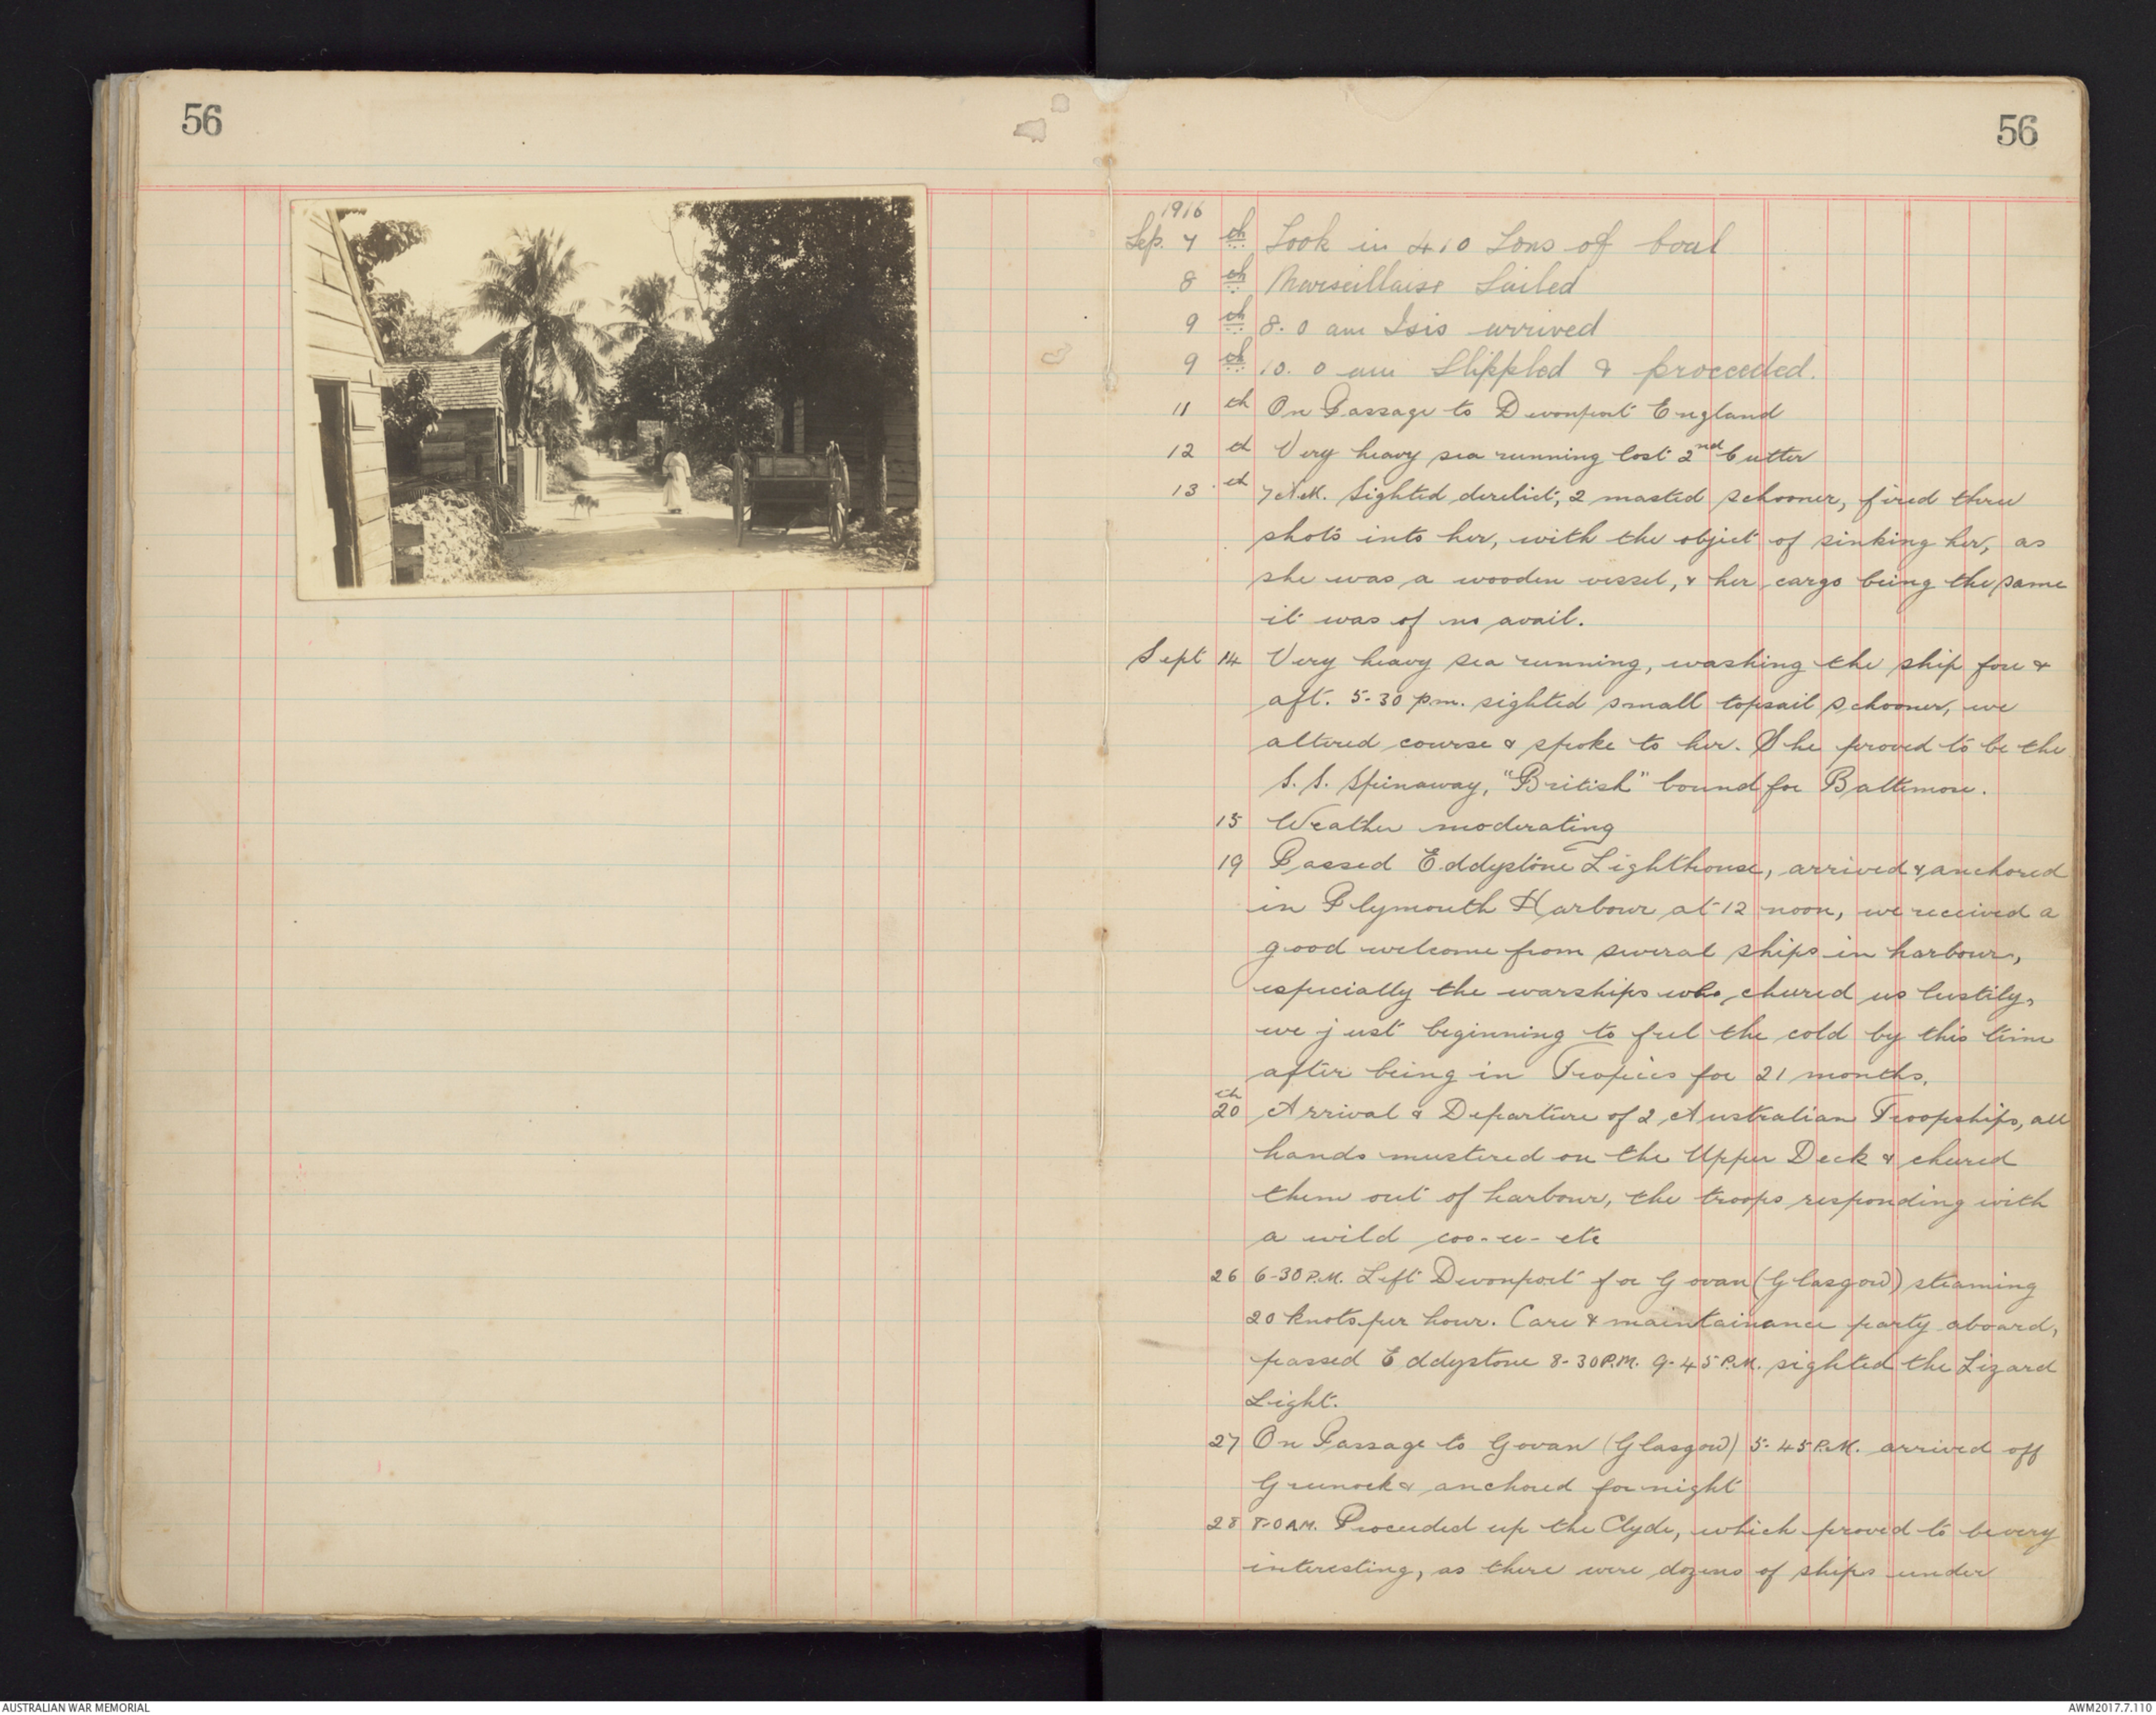 56
56
1916
Sep. 7 th Took in 410 Tons of Coal
8 th Marseillaise Sailed
9 th 8.0 am Isis arrived
9 th 10.0 am Slippled & proceeded.
11 th On Passage to Devonport England
12 th Very heavy sea running lost 2nd Cutter
13 th 7 A.M. Sighted derelict, 2 masted schooner, fired three
shots into her, with the object of sinking her, as
she was a wooden vessel, & her cargo being the same
it was of no avail.
Sept 14 Very heavy sea running, washing the ship fore &
aft. 5-30 pm. sighted small topsail schooner, we
altered course & spoke to her. She proved to be the
S.S. Spinaway, "British" bound for Baltimore.
15 Weather moderating
19 Passed Eddystone Lighthouse, arrived & anchored
in Plymouth Harbour at 12 noon, we received a
good welcome from several ships in harbour,
especially the warships who cheered us lustily,
we just beginning to feel the cold by this time
after being in Tropics for 21 months.
20th Arrival & Departure of 2 Australian Troopships, all
hands mustered on the Upper Deck & cheered
them out of harbour, the troops responding with
a wild coo-ee- etc
26 6-30 P.M. Left Devonport for Govan (Glasgow) steaming
20 knots per hour. Care & maintainance party aboard,
passed Eddystone 8-30 P.M. 9-45 P.M. sighted the Lizard
Light.
27 On Passage to Govan (Glasgow) 5-45 P.M. arrived off
Greenock & anchored for night
28 8-0 AM. Proceeded up the Clyde, which proved to be very
interesting, as there were dozens of ships under
AUSTRALIAN WAR MEMORIAL
AWM2017.7.110